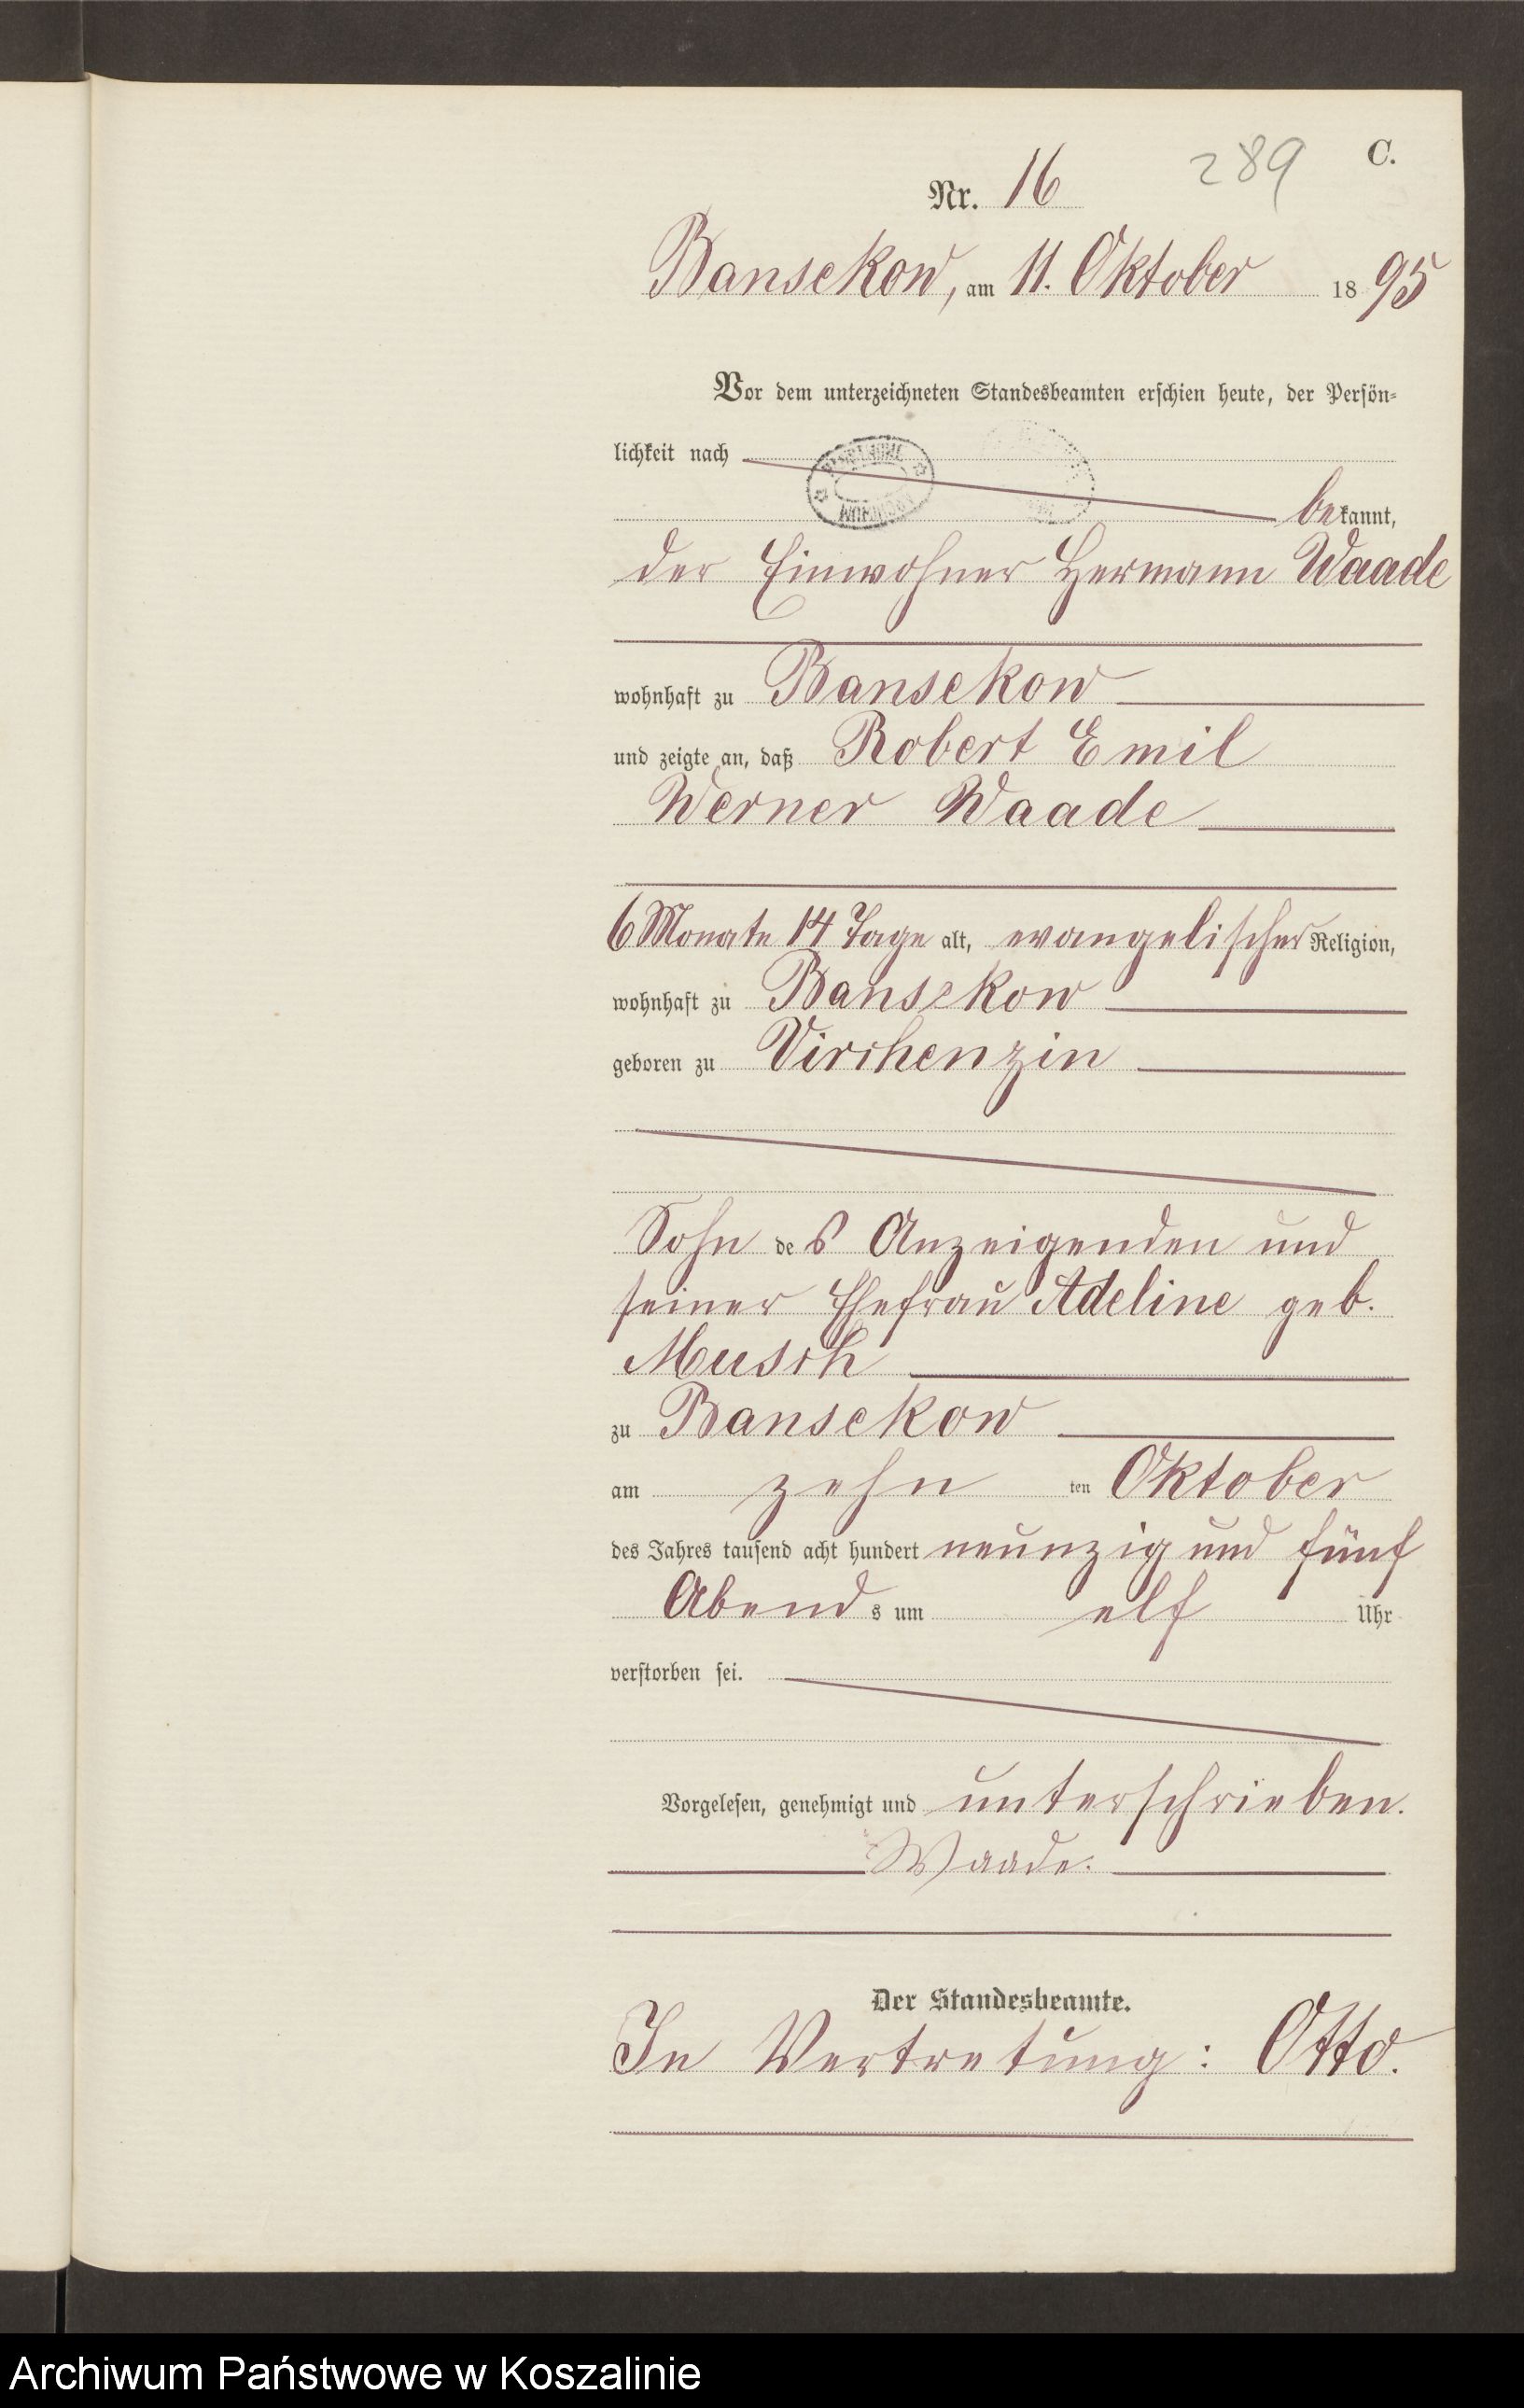 289 C.
Nr. 16
Bansekow, am 11. Oktober 1895
Vor dem unterzeichneten Standesbeamten erschien heute, der Persön-
lichkeit nach
bekannt,
der Einwohner Hermann Waade
wohnhaft zu Bansekow
und zeigte an, daß Robert Emil
Werner Waade
6 Monate 14 Tage alt, evangelischer Religion,
wohnhaft zu Bansekow
geboren zu Virchenzin
Sohn des Anzeigenden und
seiner Ehefrau Adeline geb.
Musch
zu Bansekow
am zehn ten Oktober
des Jahres tausend acht hundert neunzig und fünf
Abends um elf Uhr
verstorben sei.
Vorgelesen, genehmigt und unterschrieben.
Waade.
Der Standesbeamte.
In Vertretung: Otto.
Archiwum Państwowe w Koszalinie